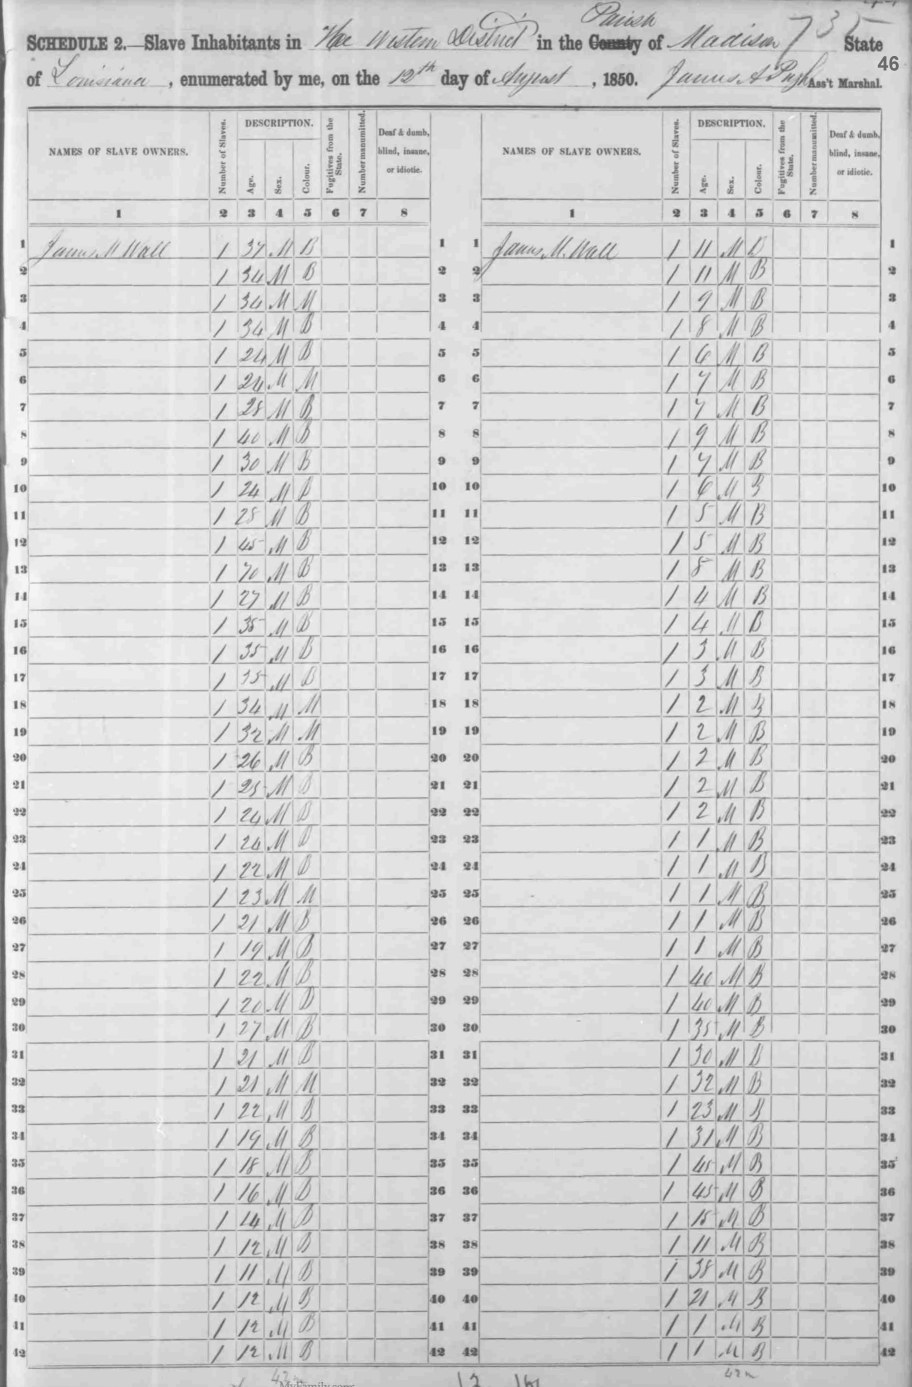 735
46
SCHEDULE 2.—Slave Inhabitants in The Western District in the County Parish of Madison State
of Louisiana, enumerated by me, on the 12th day of August, 1850. James A Pugh Ass't Marshal.
NAMES OF SLAVE OWNERS. Number of Slaves. DESCRIPTION. Age. Sex. Colour. Fugitives from the State. Number manumitted. Deaf & dumb, blind, insane, or idiotic. NAMES OF SLAVE OWNERS. Number of Slaves. DESCRIPTION. Age. Sex. Colour. Fugitives from the State. Number manumitted. Deaf & dumb, blind, insane, or idiotic.
1 2 3 4 5 6 7 8 1 2 3 4 5 6 7 8
1 James M Wall 1 37 M B 1 1 James M. Wall 1 11 M B 1
2 1 34 M B 2 2 1 11 M B 2
3 1 34 M M 3 3 1 9 M B 3
4 1 34 M B 4 4 1 8 M B 4
5 1 24 M B 5 5 1 6 M B 5
6 1 24 M M 6 6 1 7 M B 6
7 1 28 M B 7 7 1 7 M B 7
8 1 40 M B 8 8 1 9 M B 8
9 1 30 M B 9 9 1 7 M B 9
10 1 24 M B 10 10 1 6 M B 10
11 1 28 M B 11 11 1 5 M B 11
12 1 45 M B 12 12 1 5 M B 12
13 1 70 M B 13 13 1 8 M B 13
14 1 27 M B 14 14 1 4 M B 14
15 1 35 M B 15 15 1 4 M B 15
16 1 35 M B 16 16 1 3 M B 16
17 1 35 M B 17 17 1 3 M B 17
18 1 34 M M 18 18 1 2 M B 18
19 1 32 M M 19 19 1 2 M B 19
20 1 26 M B 20 20 1 2 M B 20
21 1 25 M B 21 21 1 2 M B 21
22 1 24 M B 22 22 1 2 M B 22
23 1 24 M B 23 23 1 1 M B 23
24 1 22 M B 24 24 1 1 M B 24
25 1 23 M M 25 25 1 1 M B 25
26 1 21 M B 26 26 1 1 M B 26
27 1 19 M B 27 27 1 1 M B 27
28 1 22 M B 28 28 1 40 M B 28
29 1 20 M B 29 29 1 40 M B 29
30 1 27 M B 30 30 1 35 M B 30
31 1 21 M B 31 31 1 30 M B 31
32 1 21 M M 32 32 1 32 M B 32
33 1 22 M B 33 33 1 23 M B 33
34 1 19 M B 34 34 1 31 M B 34
35 1 18 M B 35 35 1 45 M B 35
36 1 16 M B 36 36 1 45 M B 36
37 1 14 M B 37 37 1 15 M B 37
38 1 12 M B 38 38 1 11 M B 38
39 1 11 M B 39 39 1 38 M B 39
40 1 12 M B 40 40 1 21 M B 40
41 1 12 M B 41 41 1 1 M B 41
42 1 12 M B 42 42 1 1 M B 42
42 m 42 m
MyFamily.com